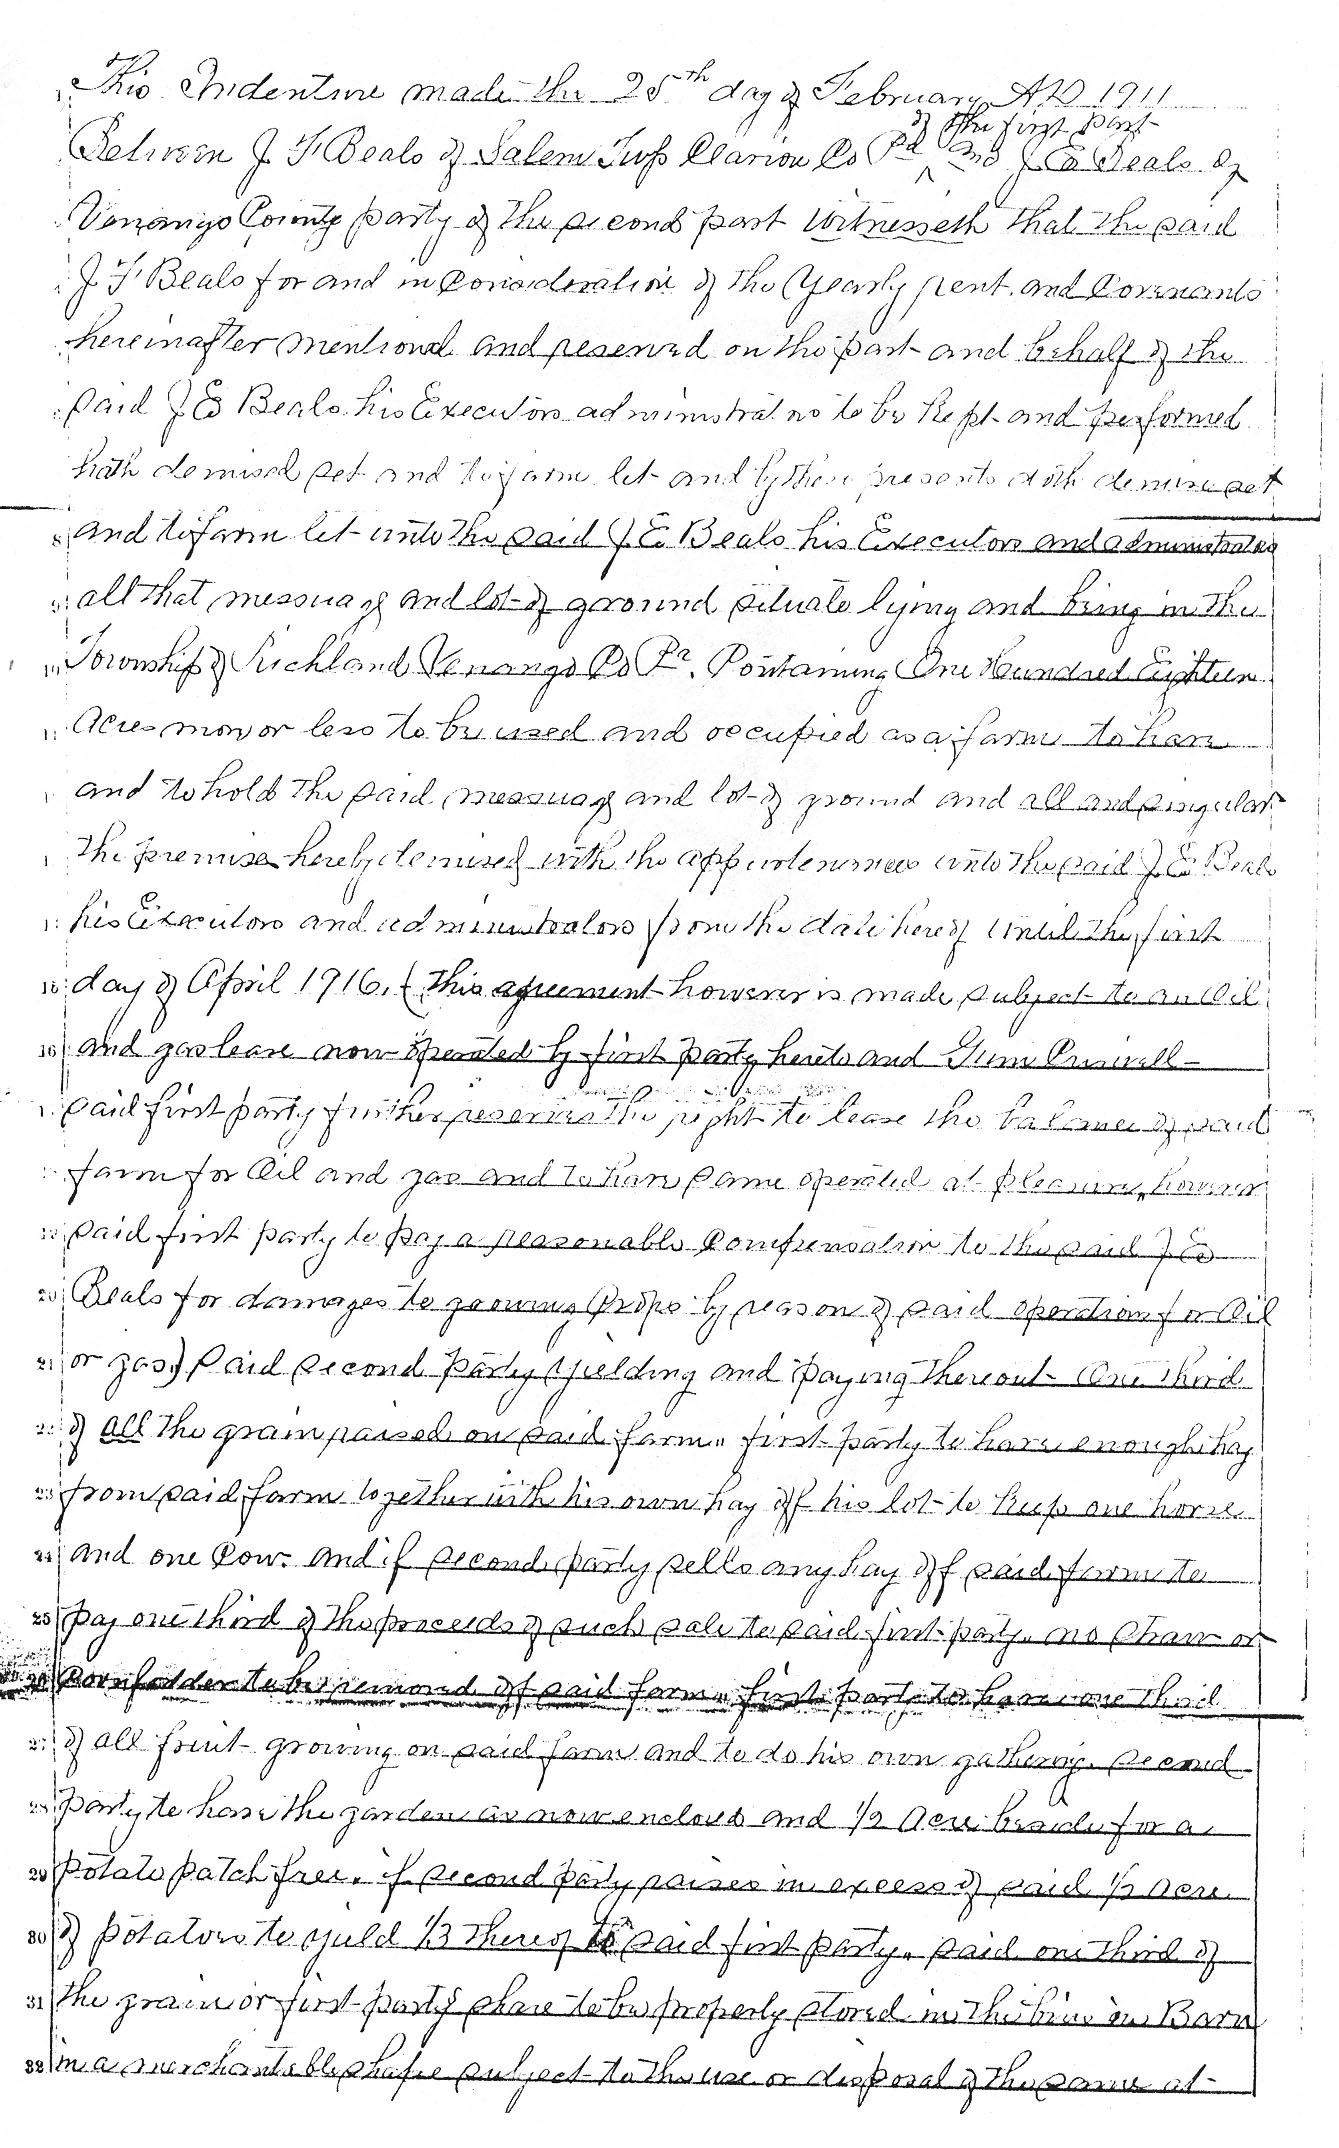 This Indenture made the 25th day of February AD 1911
of the first part
Between J F Beals of Salem Twp Clarion Co Pa and J E Beals of
Venango County party of the second part Witnesseth that the said
J F Beals for and in Consideration of the Yearly rent and Covenants
hereinafter mentioned and reserved on the part and behalf of the
said J E Beals his Executors administrators to be Kept and performed
hath demised set and to farm let and by these presents doth demise set
8 and to farm let unto the said J E Beals his Executors and administrators
9 all that messuage and lot of ground situate lying and being in the
10 Township of Richland Venango Co Pa. Containing One Hundred Eighteen
Acres mor or less to be used and occupied as a farm to have
and to hold the said messuage and lot of ground and all and singular
the premises hereby demised with the appurtenances unto the said J E Beals
his Executors and administrators from the date hereof Until the first
15 day of April 1916. (This agreement however is made subject to an Oil
16 and gas lease now operated by first party hereto and
said first party further reserves the right to lease the balance of said
farm for Oil and gas and to have same operated at pleasure, however
19 said first party to pay a reasonable Compensation to the said J E
20 Beals for damages to growing Crops by reason of said operation for Oil
21 or gas.) Said second Party Yielding and paying Thereout One third
22 of all the grain raised on said farm. first party to have enough hay
23 from said farm together with his own hay off his lot to keep one horse
24 and one Cow. and if second party sells any hay off said farm to
25 pay one third of the proceeds of such sale to said first party. no Straw or
26 Corn fodder to be removed off said farm. first party to have one third
27 of all fruit growing on said farm and to do his own gathering. second
28 party to have the garden as now enclosed and 1/2 Acre beside for a
29 potato patch free. if second party raises in excess of said 1/2 Acre
30 of potatoes to yield 1/3 thereof to said first party. said one third of
31 the grain or first partys share to be properly stored in the bins in Barn
32 in a merchantable shape subject to the use or disposal of the same at